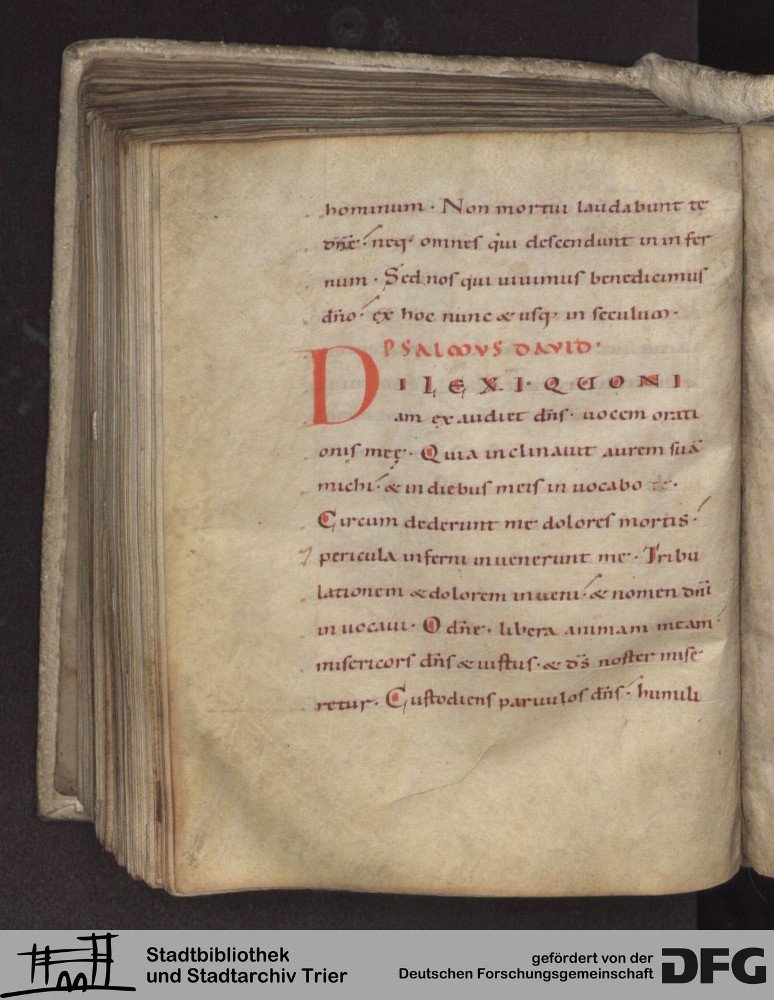 hominum · Non mortui laudabunt te
dn̄e · neq; omnes qui descendunt in infer
num · Sed nos qui uiuimus benedicimus
dn̄o · ex hoc nunc & usq; in seculum ·
PSALMVS DAVID ·
DILEXI · QUONI
am exaudiet dn̄s · uocem orati
onis meę · Quia inclinauit aurem suā
michi · & in diebus meis inuocabo te ·
Circumdederunt me dolores mortis ·
⁊ pericula inferni inuenerunt me · Tribu
lationem & dolorem inueni · & nomen dn̄i
inuocaui · O dn̄e · libera animam meam ·
misericors dn̄s & iustus · & ds̄ noster mise
retur · Custodiens paruulos dn̄s · humili
Stadtbibliothek
und Stadtarchiv Trier
gefördert von der
Deutschen Forschungsgemeinschaft
DFG